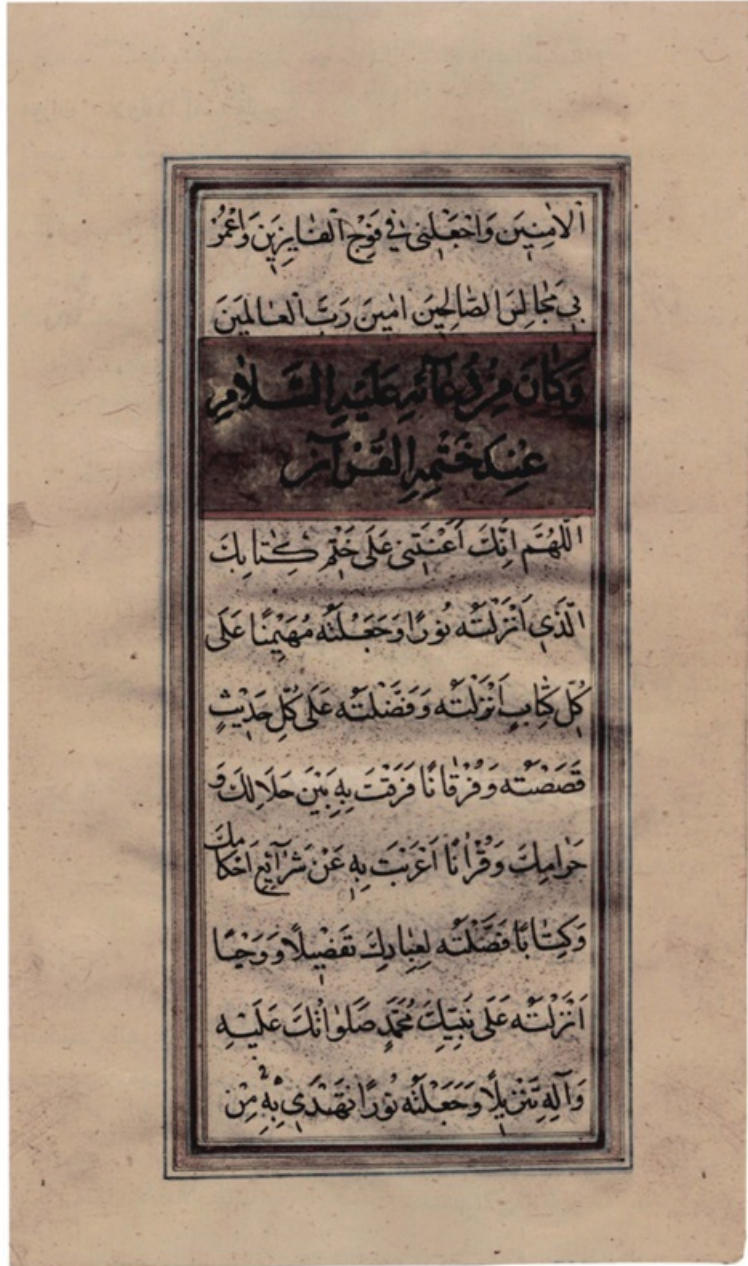 الْاٰمِنِينَ وَاجْعَلْنِي فِي فَوْجِ الْفَايِزِينَ وَاعْمُرْ
بِي مَجَالِسَ الصَّالِحِينَ اٰمِينَ رَبَّ الْعَالَمِينَ
وَكَانَ مِنْ دُعَائِهِ عَلَيْهِ السَّلَامُ
عِنْدَ خَتْمِهِ الْقُرْآنَ
اَللّٰهُمَّ اِنَّكَ اَعَنْتَنِي عَلَى خَتْمِ كِتَابِكَ
الَّذِي اَنْزَلْتَهُ نُورًا وَجَعَلْتَهُ مُهَيْمِنًا عَلَى
كُلِّ كِتَابٍ اَنْزَلْتَهُ وَفَضَّلْتَهُ عَلَى كُلِّ حَدِيثٍ
قَصَصْتَهُ وَفُرْقَانًا فَرَقْتَ بِهِ بَيْنَ حَلَالِكَ وَ
حَرَامِكَ وَقُرْاٰنًا اَعْرَبْتَ بِهِ عَنْ شَرَآئِعِ اَحْكَامِكَ
وَكِتَابًا فَصَّلْتَهُ لِعِبَادِكَ تَفْصِيلًا وَوَحْيًا
اَنْزَلْتَهُ عَلَى نَبِيِّكَ مُحَمَّدٍ صَلَوَاتُكَ عَلَيْهِ
وَآلِهِ تَنْزِيلًا وَجَعَلْتَهُ نُورًا نَهْتَدِي بِهِ مِنْ